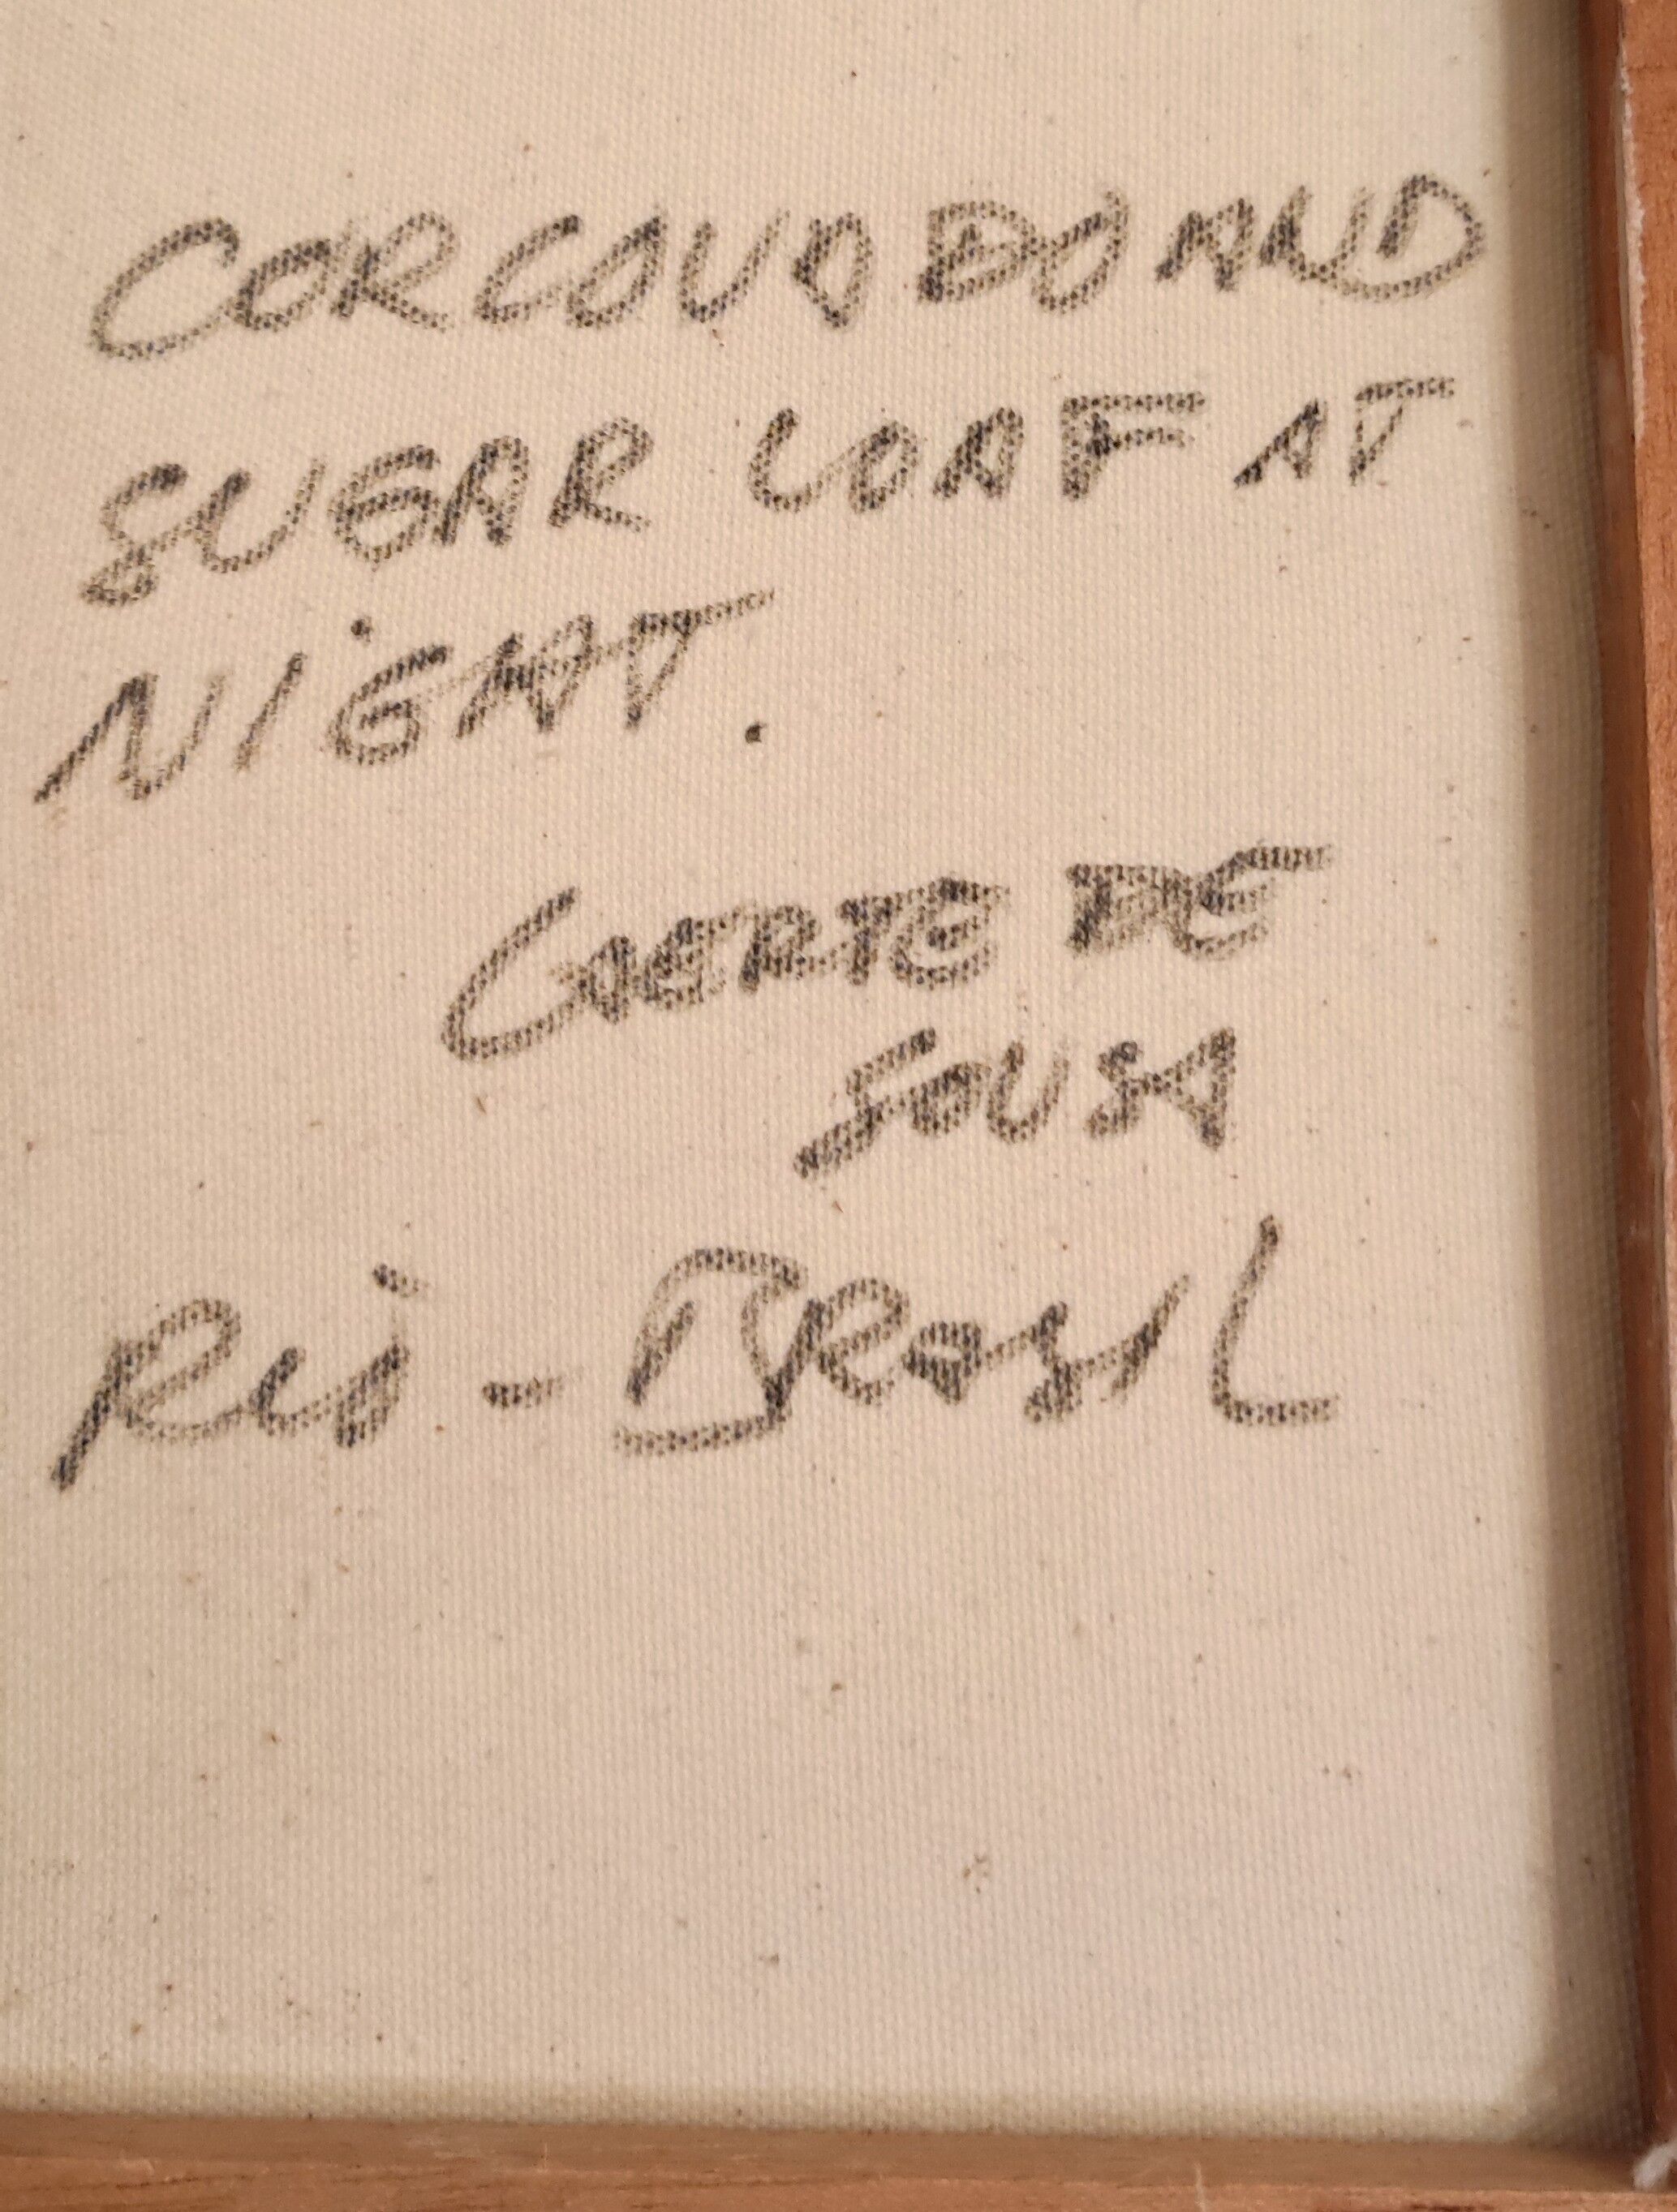 CORCOVADO AND
SUGAR LOAF AT
NIGHT.
DE
SOUSA
Rio - BRASIL